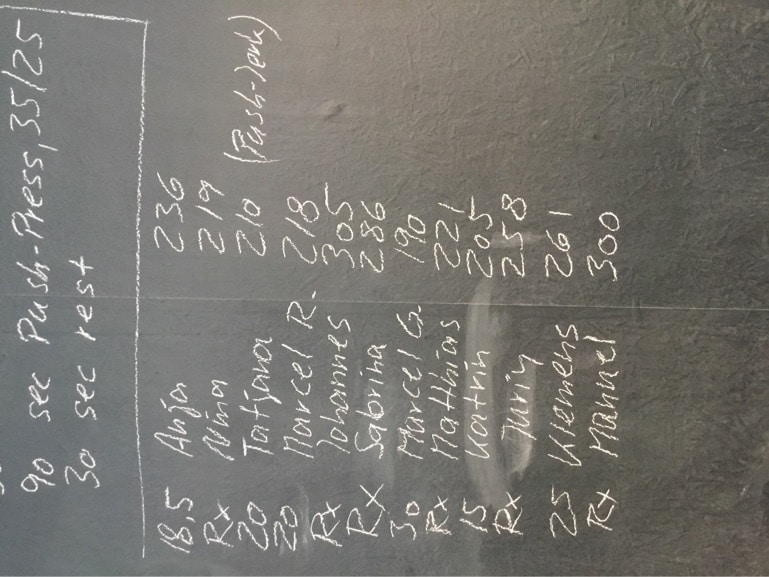 90 sec Push-Press, 35/25
30 sec rest
18,5 Anja 236
Rx Nina 219
20 Tatjana 210 (Push-Jerk)
20 Marcel R. 218
Rx Johannes 305
Rx Sabrina 286
30 Marcel G. 190
Rx Matthias 221
15 Katrin 205
Rx Juriy 258
25 Klemens 261
Rx Manuel 300